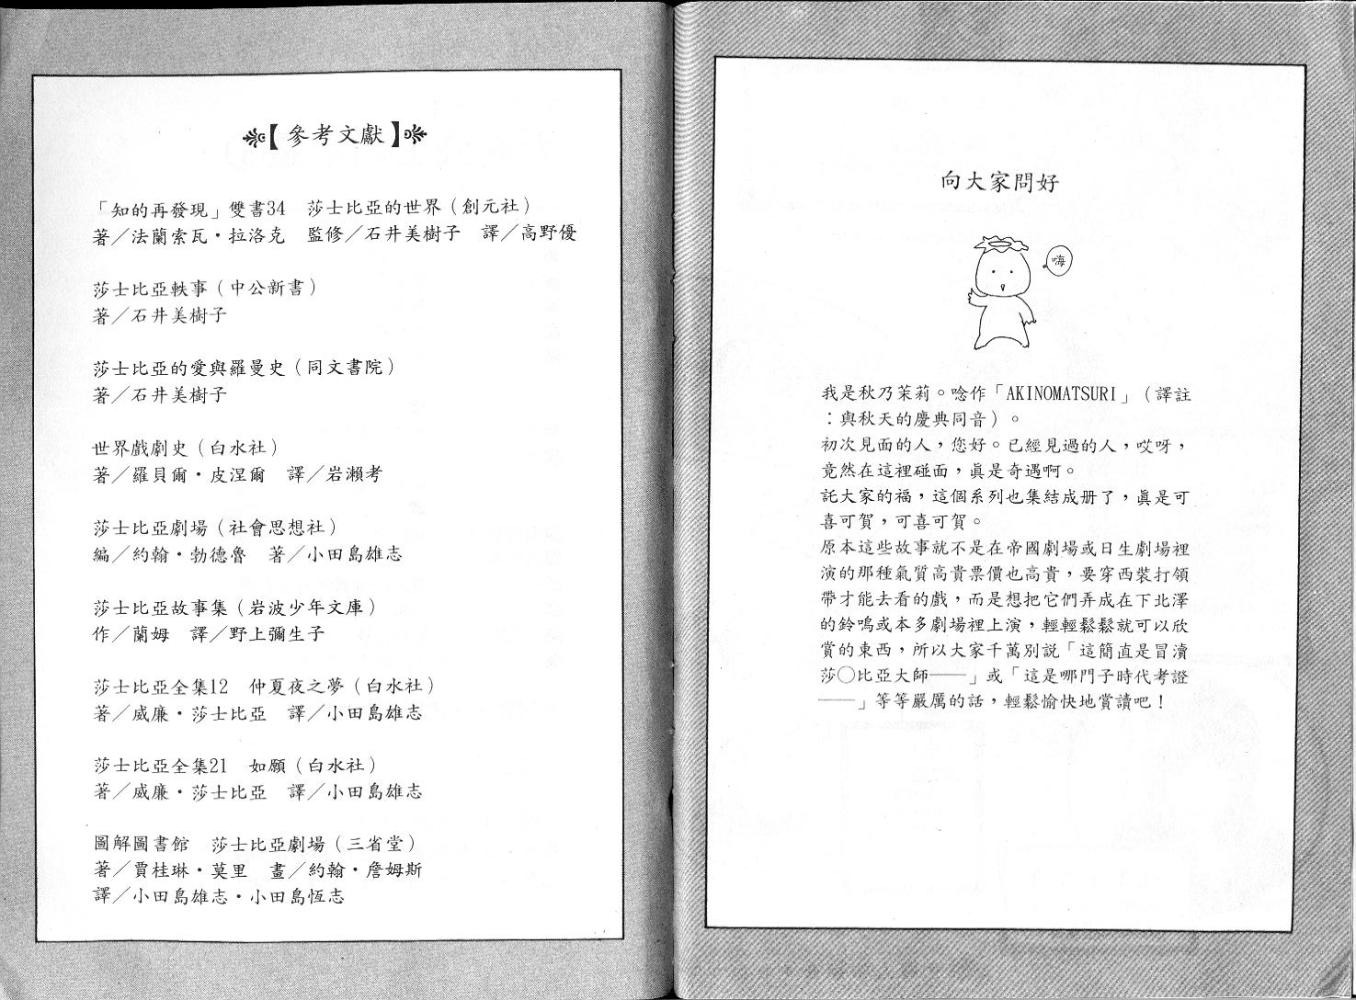 【參考文獻】
「知的再發現」雙書34　莎士比亞的世界（創元社）
著／法蘭索瓦・拉洛克　監修／石井美樹子　譯／高野優
莎士比亞軼事（中公新書）
著／石井美樹子
莎士比亞的愛與羅曼史（同文書院）
著／石井美樹子
世界戲劇史（白水社）
著／羅貝爾・皮涅爾　譯／岩瀨考
莎士比亞劇場（社會思想社）
編／約翰・勃德魯　著／小田島雄志
莎士比亞故事集（岩波少年文庫）
作／蘭姆　譯／野上彌生子
莎士比亞全集12　仲夏夜之夢（白水社）
著／威廉・莎士比亞　譯／小田島雄志
莎士比亞全集21　如願（白水社）
著／威廉・莎士比亞　譯／小田島雄志
圖解圖書館　莎士比亞劇場（三省堂）
著／賈桂琳・莫里　畫／約翰・詹姆斯
譯／小田島雄志・小田島恆志
向大家問好
嗨
我是秋乃茉莉。唸作「AKINOMATSURI」（譯註
：與秋天的慶典同音）。
初次見面的人，您好。已經見過的人，哎呀，
竟然在這裡碰面，真是奇遇啊。
託大家的福，這個系列也集結成冊了，真是可
喜可賀，可喜可賀。
原本這些故事就不是在帝國劇場或日生劇場裡
演的那種氣質高貴票價也高貴，要穿西裝打領
帶才能去看的戲，而是想把它們弄成在下北澤
的鈴鳴或本多劇場裡上演，輕輕鬆鬆就可以欣
賞的東西，所以大家千萬別說「這簡直是冒瀆
莎○比亞大師——」或「這是哪門子時代考證
——」等等嚴厲的話，輕鬆愉快地賞讀吧！